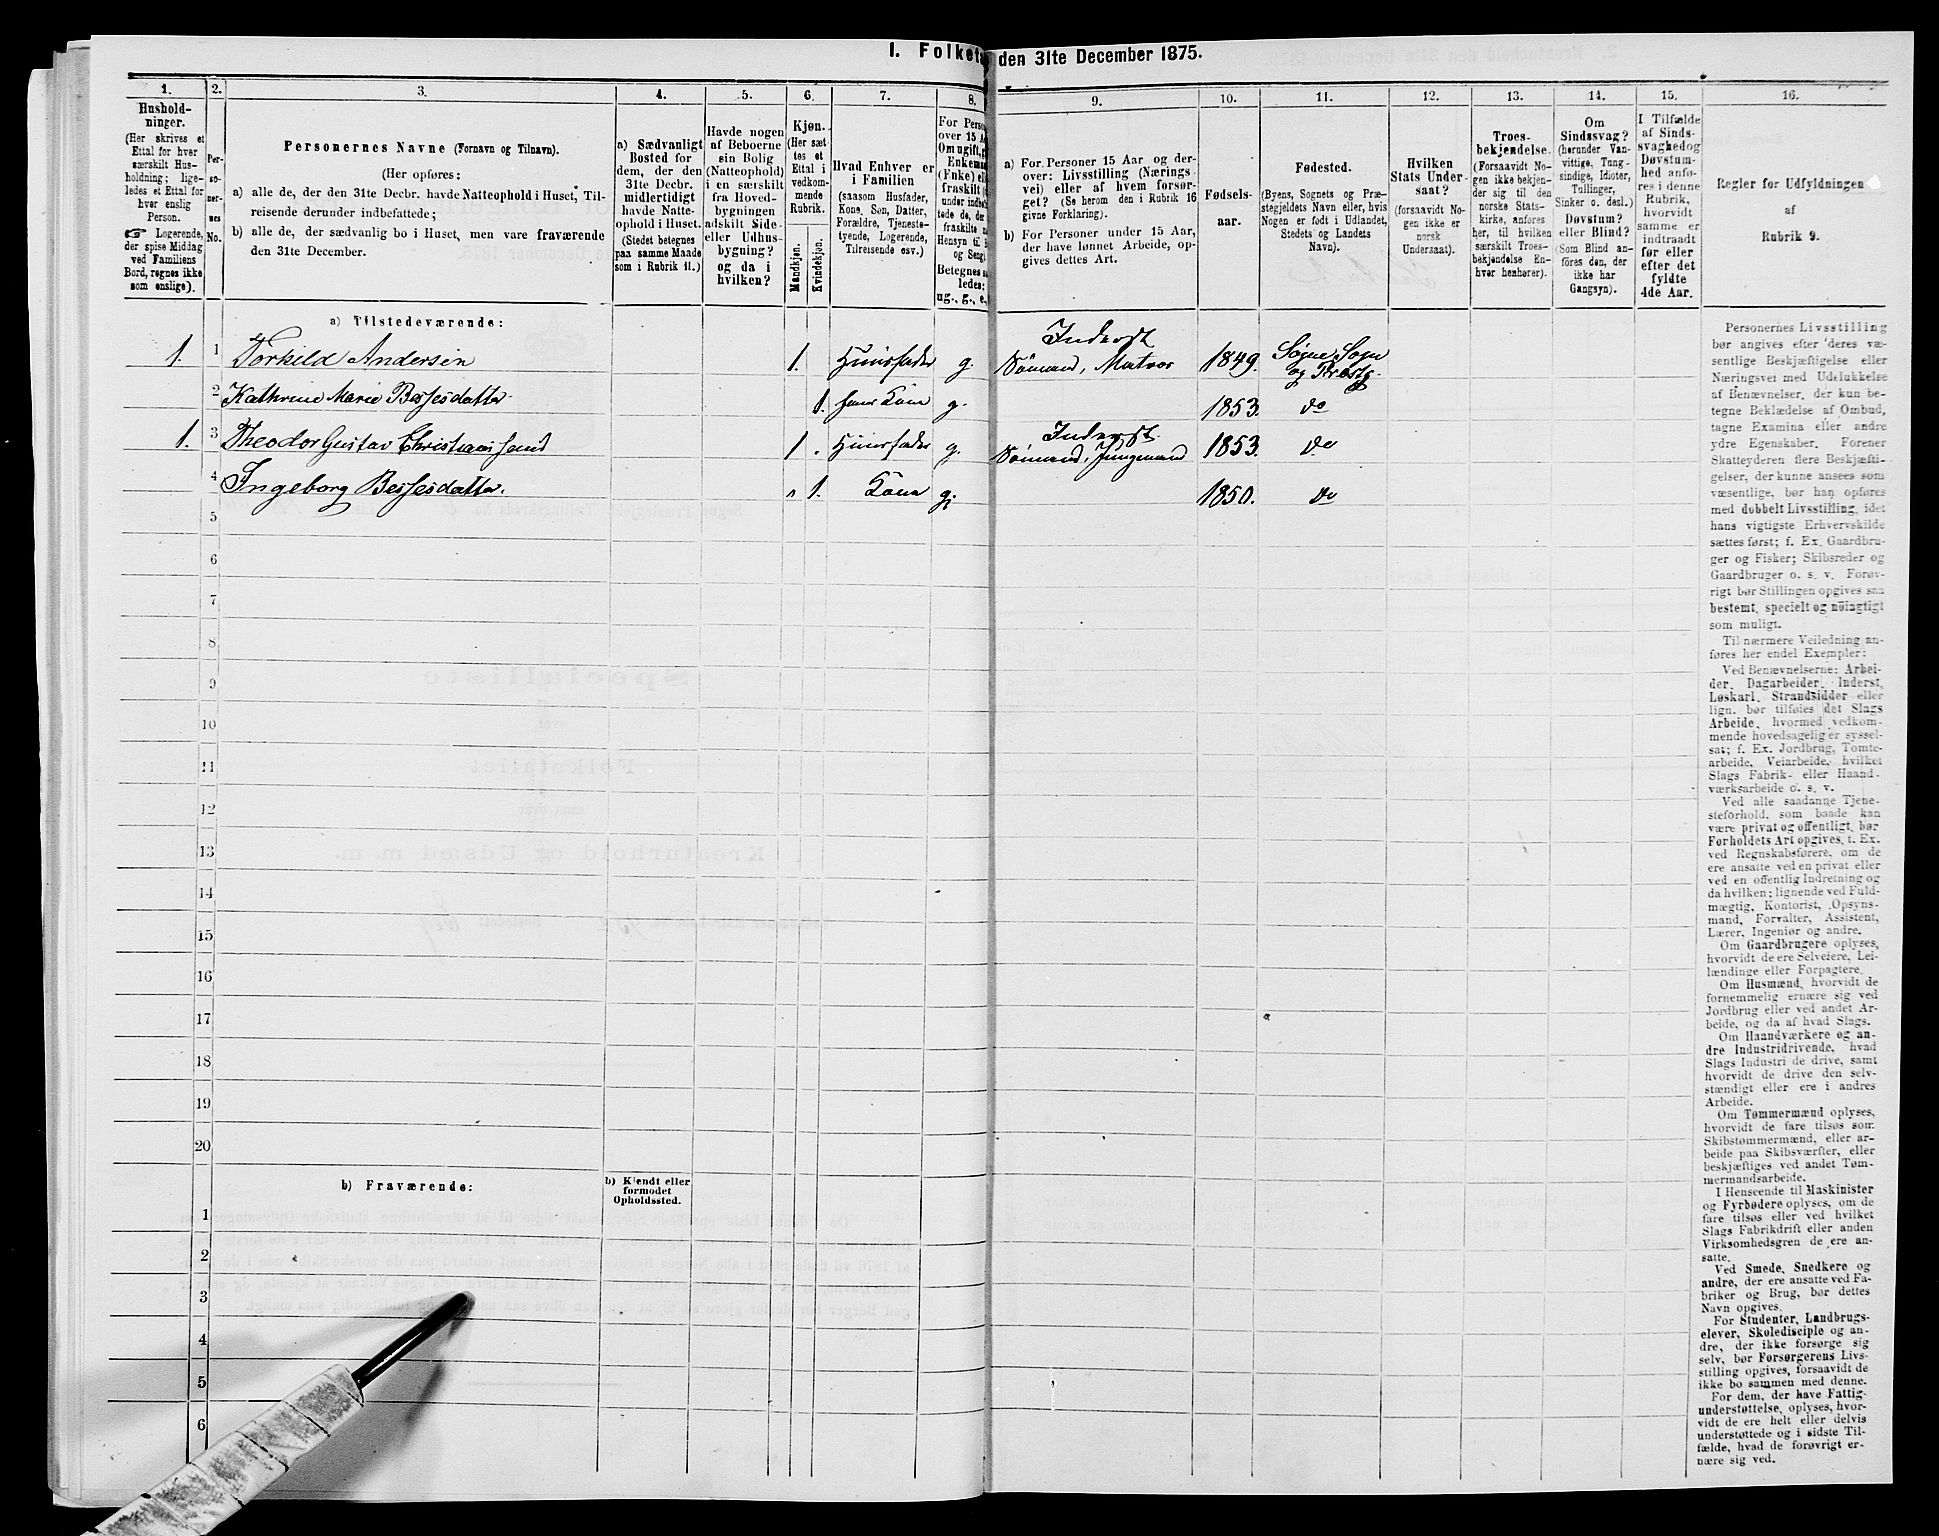 I. Folketæ den 31te December 1875.
1. 2. 3. 4. 5. 6. 7. 8. 9. 10. 11. 12. 13. 14. 15. 16.
Hushold-
ninger.
(Her skrives et
Ettal for hver
særskilt Hus-
holdning; lige-
ledes et Ettal for
hver enslig
Person.
☞ Logerende,
der spise Middag
ved Familiens
Bord, regnes ikke
som enslige).
Per-
so-
ner-
nes
No.
Personernes Navne (Fornavn og Tilnavn).
(Her opføres:
a) alle de, der den 31te Decbr. havde Natteophold i Huset, Til-
reisende derunder indbefattede;
b) alle de, der sædvanlig bo i Huset, men vare fraværende
den 31te December.
a) Sædvanligt
Bosted for
dem, der den
31te Decbr.
midlertidigt
havde Natte-
ophold i Huset.
(Stedet betegnes
paa samme Maade
som i Rubrik 11.)
Havde nogen
af Beboerne
sin Bolig
(Natteophold)
i en særskilt
fra Hoved-
bygningen
adskilt Side-
eller Udhus-
bygning?
og da i
hvilken?
Kjøn.
(Her sæt-
tes et
Ettal i
vedkom-
mende
Rubrik.
Mandkjøn.
Kvindekjøn.
Hvad Enhver er
i Familien
(saasom Husfader,
Kone, Søn, Datter,
Forældre, Tjeneste-
tyende, Logerende,
Tilreisende osv.)
For Perso
over 15 Aa
Om ugift, g
Enkeman
(Enke) ell
fraskilt (
under indbe
tede de, der
fraskilte
Hensyn til B
og Seng)
Betegnes sa
ledes:
ug., g., e.,
a) For Personer 15 Aar og der-
over: Livsstilling (Nærings-
vei) eller af hvem forsør-
get? (Se herom den i Rubrik 16
givne Forklaring).
b) For Personer under 15 Aar,
der have lønnet Arbeide, op-
gives dettes Art.
Fødsels-
aar.
Fødested.
(Byens, Sognets og Præ-
stegjeldets Navn eller, hvis
Nogen er født i Udlandet,
Stedets og Landets
Navn).
Hvilken
Stats Under-
saat?
(forsaavidt No-
gen ikke er
norsk
Undersaat).
Troes-
bekjendelse.
(Forsaavidt No-
gen ikke bekjen-
der sig til den
norske Stats-
kirke, anføres
her, til hvilken
særskilt Troes-
bekjendelse En-
hver henhører).
Om
Sindssvag?
(herunder Van-
vittige, Tung-
sindige, Idioter,
Tullinger,
Sinker o. desl.)
Døvstum?
eller Blind?
(Som Blind an-
føres den, der
ikke har
Gangsyn).
I Tilfælde
af Sinds-
svaghed og
Døvstum-
hed anfø-
res i denne
Rubrik,
hvorvidt
samme er
indtraadt
før eller
efter det
fyldte
4de Aar.
Regler for Udfyldningen
af
Rubrik 9.
a) Tilstedeværende:
1. 1 Torkild Andersen 1. Huusfader g. Inderst Sømand, Matros 1849. Søgne Sogn og Præstg
2 Kathrine Marie Bessesdatter 1. hans Kone g. 1853. do
1. 3 Theodor Gustav Christiansand 1. Huusfader g. Inderst. Sømand, Jungmand 1853. do
4 Ingeborg Bessesdatter. 1. Kone g. 1850. do
5
6
7
8
9
10
11
12
13
14
15
16
17
18
19
20
b) Fraværende:
b) Kjendt eller
formodet
Opholdssted.
1
2
3
4
5
6
Personernes Livsstilling
bør angives efter deres væ-
sentlige Beskjæftigelse eller
Næringsvei med Udelukkelse
af Benævnelser, der kun be-
tegne Beklædelse af Ombud,
tagne Examina eller andre
ydre Egenskaber. Forener
Skatteyderen flere Beskjæfti-
gelser, der kunne ansees som
væsentlige, bør han opføres
med dobbelt Livsstilling, idet
hans vigtigste Erhvervskilde
sættes først; f. Ex. Gaardbru-
ger og Fisker; Skibsreder og
Gaardbruger o. s. v. Forøv-
rigt bør Stillingen opgives saa
bestemt, specielt og nøiagtigt
som muligt.
Til nærmere Veiledning an-
føres her endel Exempler:
Ved Benævnelserne: Arbei-
der, Dagarbeider, Inderst,
Løskarl, Strandsidder eller
lign. bør tilføies det Slags
Arbeide, hvormed vedkom-
mende hovedsagelig er syssel-
sat; f. Ex. Jordbrug, Tomte-
arbeide, Veiarbeide, hvilket
Slags Fabrik- eller Haand-
værksarbeide o. s. v.
Ved alle saadanne Tjene-
steforhold, som baade kan
være privat og offentligt, bør
Forholdets Art opgives, t. Ex.
ved Regnskabsførere, om de
ere ansatte ved en privat eller
ved en offentlig Indretning og
da hvilken; lignende ved Fuld-
mægtig, Kontorist, Opsyns-
mand, Forvalter, Assistent,
Lærer, Ingeniør og andre.
Om Gaardbrugere oplyses,
hvorvidt de ere Selveiere, Lei-
lændinge eller Forpagtere.
Om Husmænd, hvorvidt de
fornemmelig ernære sig ved
Jordbrug eller ved andet Ar-
beide, og da af hvad Slags.
Om Haandværkere og an-
dre Industridrivende, hvad
Slags Industri de drive, samt
hvorvidt de drive den selv-
stændigt eller ere i andres
Arbeide.
Om Tømmermænd oplyses,
hvorvidt de fare tilsøs som
Skibstømmermænd, eller ar-
beide paa Skibsværfter, eller
beskjæftiges ved andet Tøm-
mermandsarbeide.
I Henseende til Maskinister
og Fyrbødere oplyses, om de
fare tilsøs eller ved hvilket
Slags Fabrikdrift eller anden
Virksomhedsgren de ere an-
satte.
Ved Smede, Snedkere og
andre, der ere ansatte ved Fa-
briker og Brug, bør dettes
Navn opgives.
For Studenter, Landbrugs-
elever, Skoledisciple og an-
dre, der ikke forsørge sig
selv, bør Forsørgerens Livs-
stilling opgives, forsaavidt de
ikke bo sammen med denne.
For dem, der have Fattig-
understøttelse, oplyses, hvor-
vidt de ere helt eller delvis
understøttede og i sidste Til-
fælde, hvad de forøvrigt er-
nære sig ved.